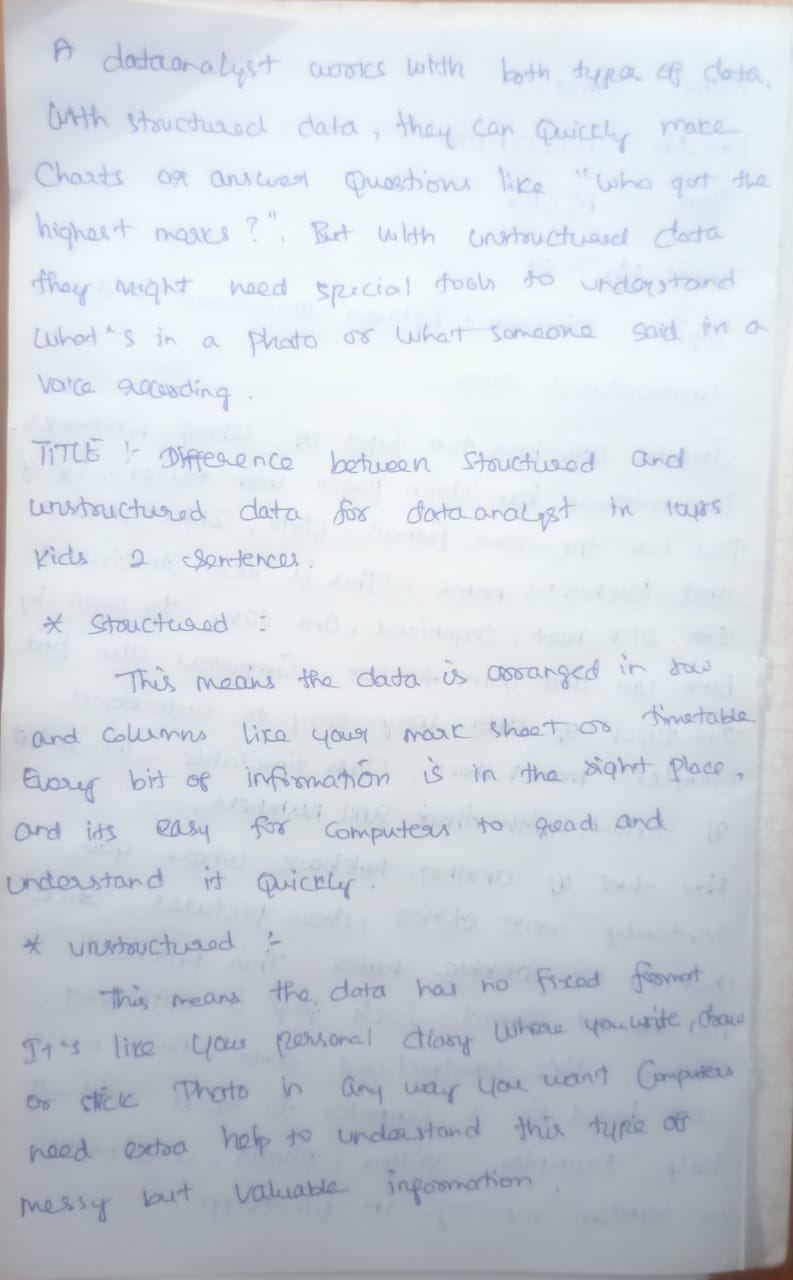 A dataanalyst works with both type of data.
With structured data, they can Quickly make
Charts or answer Questions like "who got the
highest marks?". But with unstructured data
they might need special tools to understand
What's in a photo or what someone said in a
voice recording.
TITLE :- Difference between Structured and
unstructured data for dataanalyst in
Kids 2 sentences.
* Structured :
This means the data is arranged in row
and columns like your mark sheet or timetable
Every bit of information is in the right place,
and its easy for computers to read and
understand it Quickly.
* unstructured :-
This means the data has no fixed format
It's like your personal diary where you write, draw
or stick Photo in any way you want. Computers
need extra help to understand this type of
messy but valuable information.